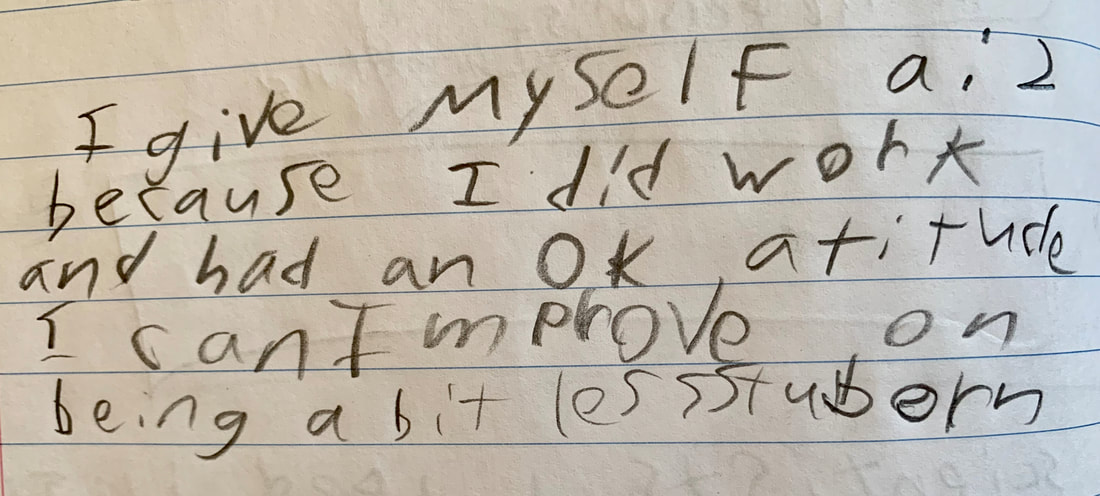 I give myself a 2
because I did work
and had an OK atitude
I can Improve on
being a bit less stuborn